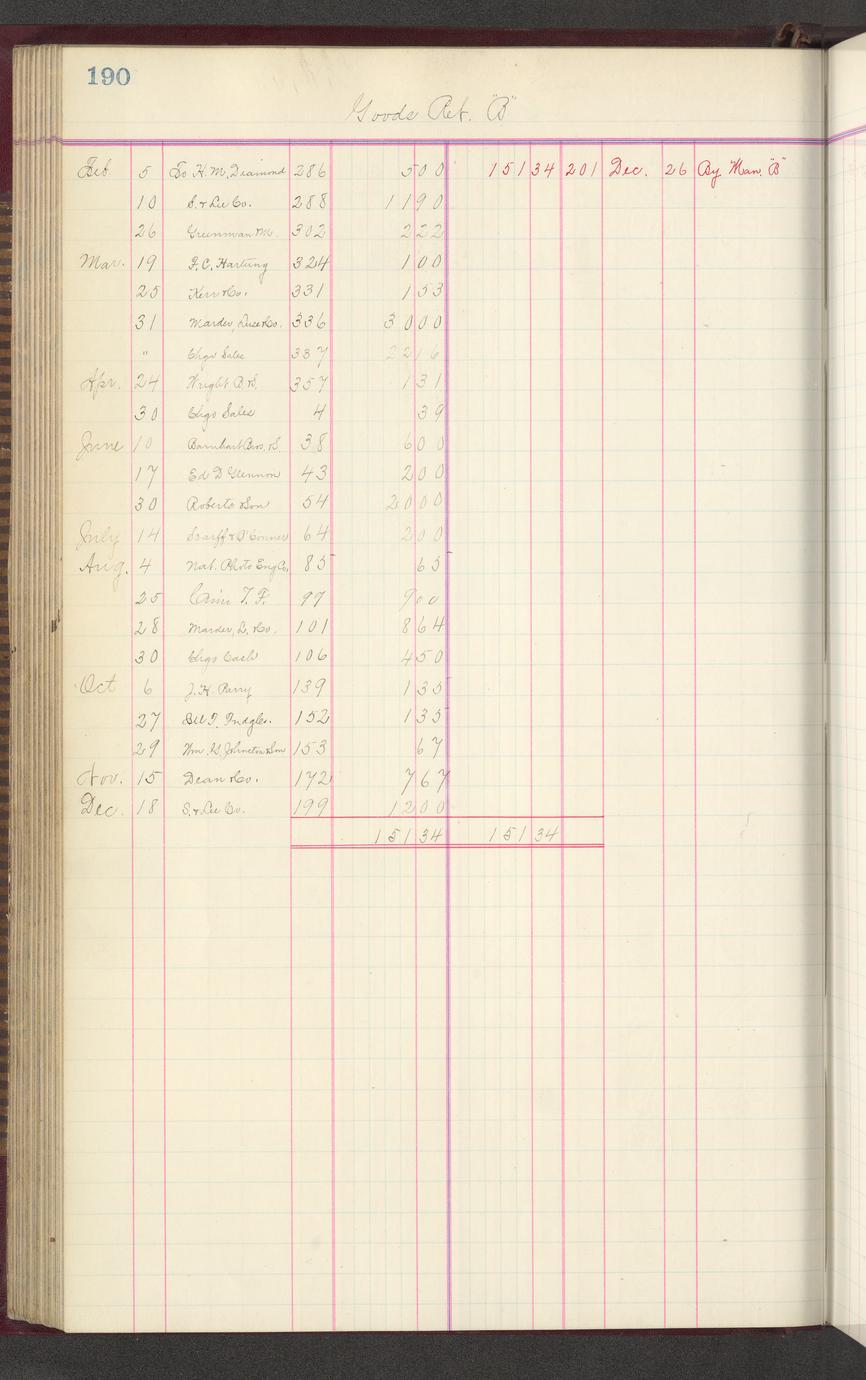 190
Goods Ret. "B"
Feb 5 To H. M. Diamond 286 5 00 151 34 201 Dec. 26 By Man. "B"
10 S. & Lee Co. 288 11 90
26 Greenman M. 302 2 22
Mar. 19 F. C. Hartung 324 1 00
25 Kerr & Co. 331 1 53
31 Marder, Luse & Co. 336 30 00
" Chgo Sales 337 22 16
Apr. 24 Wright B. S. 357 1 31
30 Chgo Sales 4 39
June 10 Barnhart Bros. & S. 38 6 00
17 Ed D Glennon 43 2 00
30 Roberts & Son 54 20 00
July 14 Scarff & O'Connor 64 2 00
Aug. 4 Nat. Photo Eng Co. 85 65
25 Cain T. F. 97 9 00
28 Marder, L. & Co. 101 8 64
30 Chgo Cash 106 4 50
Oct 6 J. H. Parry 139 1 35
27 152 1 35
29 Wm. G. Johnston & Son 153 67
Nov. 15 Dean & Co. 172 7 67
Dec. 18 S. & Lee Co. 199 12 00
151 34 151 34